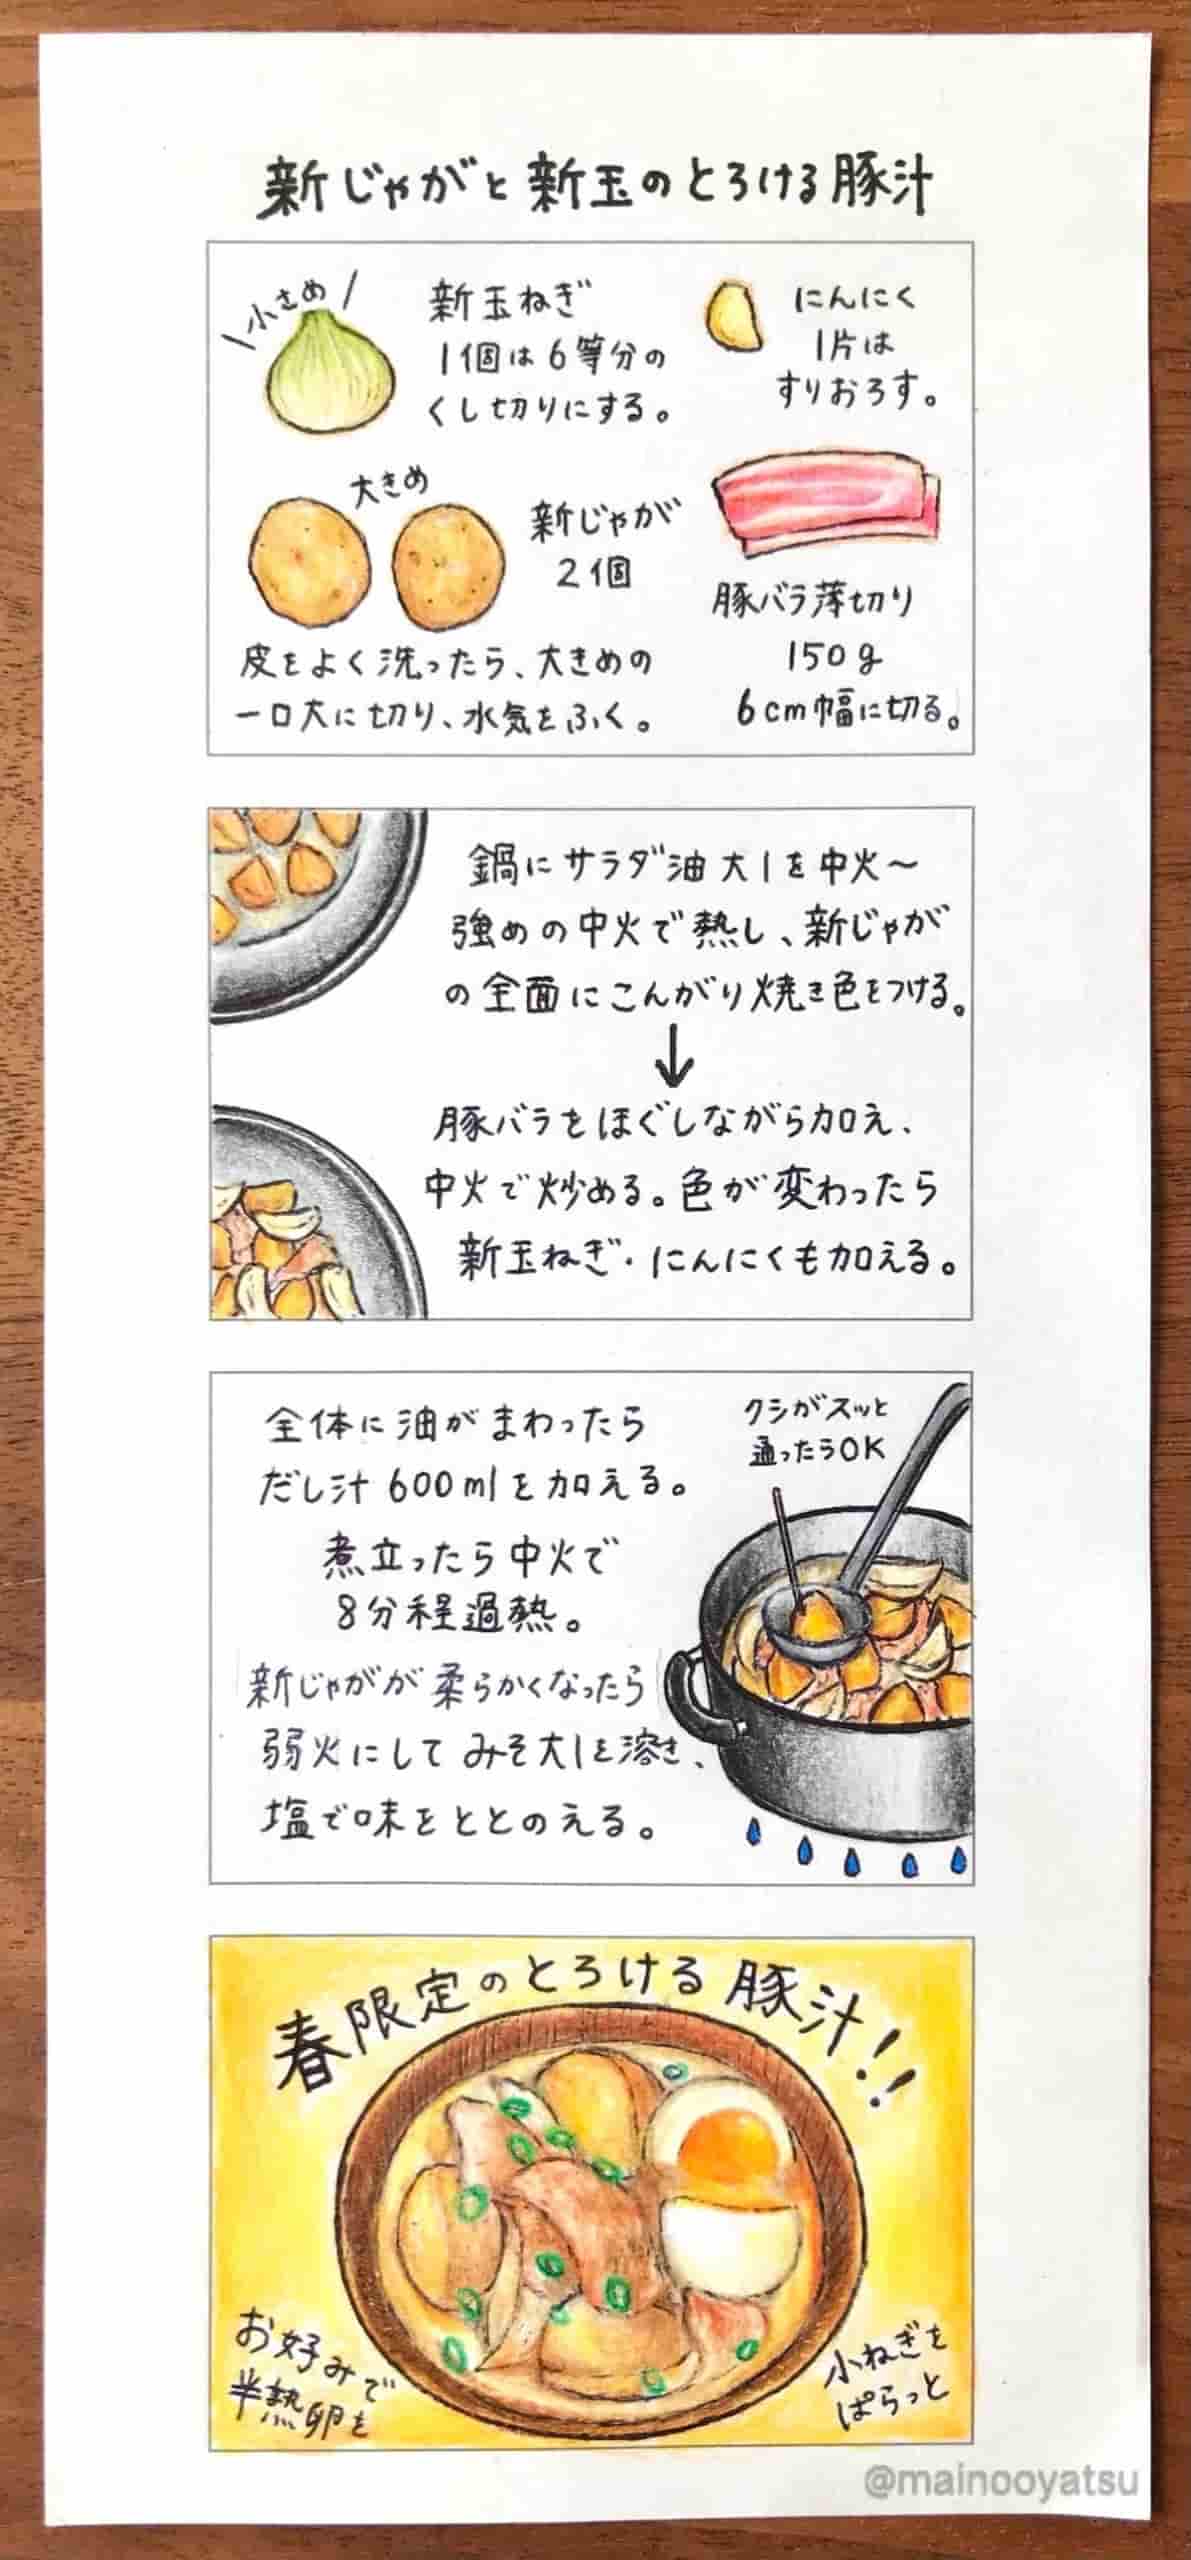 新じゃがと新玉のとろける豚汁
小さめ
新玉ねぎ
1個は6等分の
くし切りにする。
にんにく
1片は
すりおろす。
大きめ
新じゃが
2個
皮をよく洗ったら、大きめの
一口大に切り、水気をふく。
豚バラ薄切り
150g
6cm幅に切る。
鍋にサラダ油大1を中火〜
強めの中火で熱し、新じゃが
の全面にこんがり焼き色をつける。
↓
豚バラをほぐしながら加え、
中火で炒める。色が変わったら
新玉ねぎ・にんにくも加える。
全体に油がまわったら
だし汁600mlを加える。
煮立ったら中火で
8分程過熱。
新じゃがが柔らかくなったら
弱火にしてみそ大1を溶き、
塩で味をととのえる。
クシがスッと
通ったらOK
春限定のとろける豚汁!!
お好みで
半熱卵を
小ねぎを
ぱらっと
@mainooyatsu